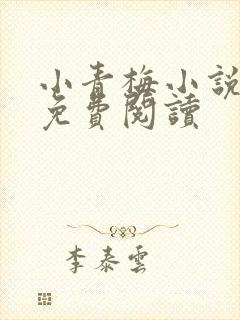 小青梅小說
免費閱讀
李泰雲